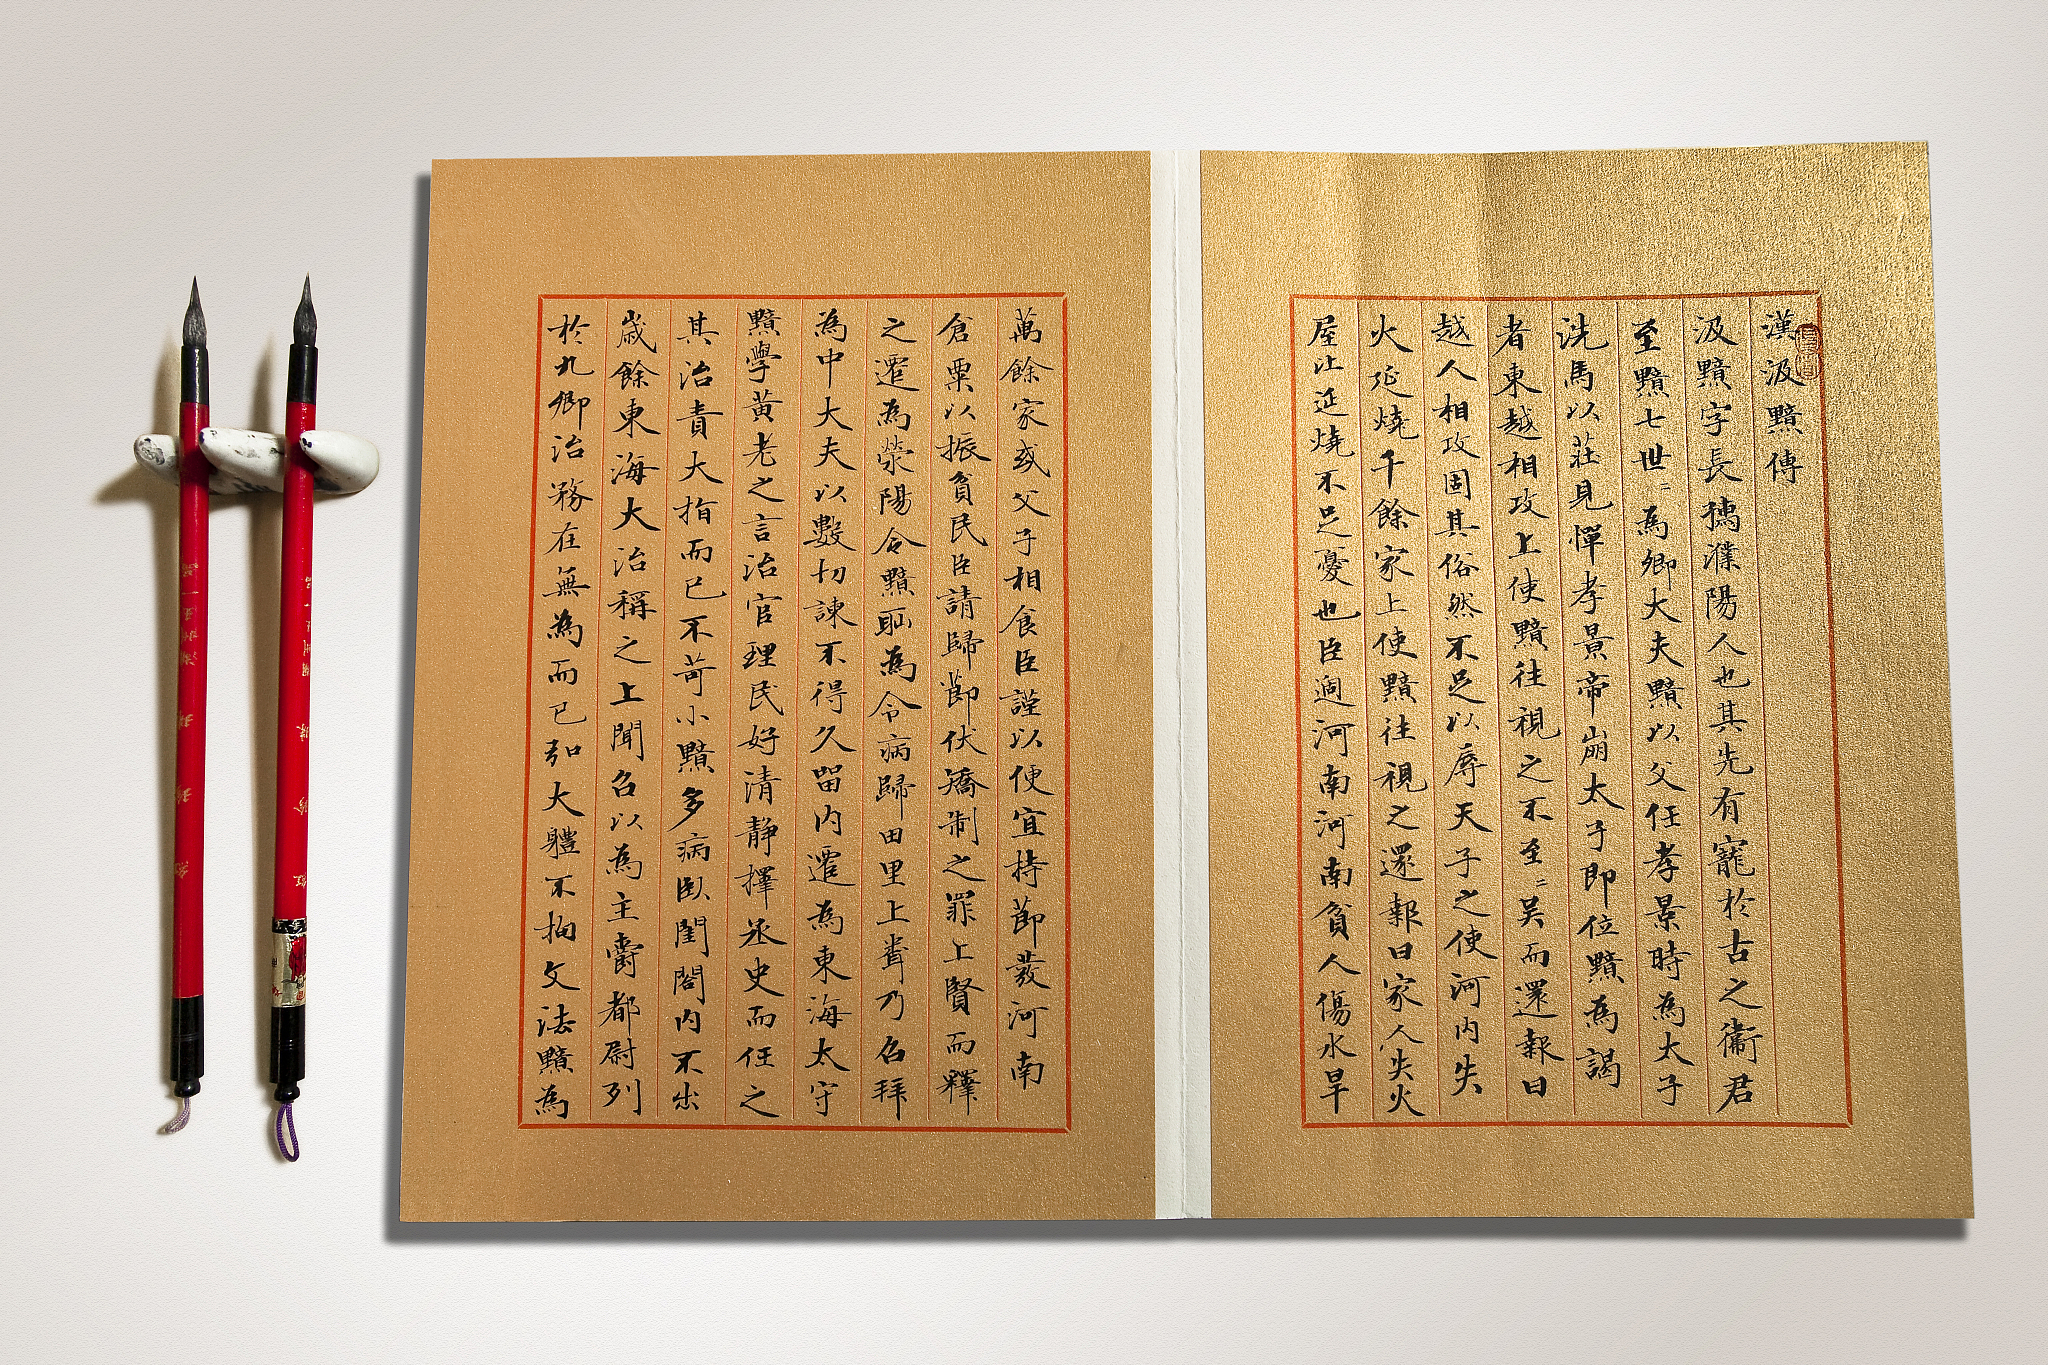 漢汲黯傳
汲黯字長孺濮陽人也其先有寵於古之衛君
至黯七世〻為卿大夫黯以父任孝景時為太子
洗馬以莊見憚孝景帝崩太子即位黯為謁
者東越相攻上使黯往視之不至〻吳而還報曰
越人相攻固其俗然不足以辱天子之使河內失
火延燒千餘家上使黯往視之還報曰家人失火
屋比延燒不足憂也臣過河南河南貧人傷水旱
萬餘家或父子相食臣謹以便宜持節發河南
倉粟以振貧民臣請歸節伏矯制之罪上賢而釋
之遷為滎陽令黯恥為令病歸田里上聞乃召拜
為中大夫以數切諫不得久留內遷為東海太守
黯學黃老之言治官理民好清靜擇丞史而任之
其治責大指而已不苛小黯多病臥閨閤內不出
歲餘東海大治稱之上聞召以為主爵都尉列
於九卿治務在無為而已弘大體不拘文法黯為